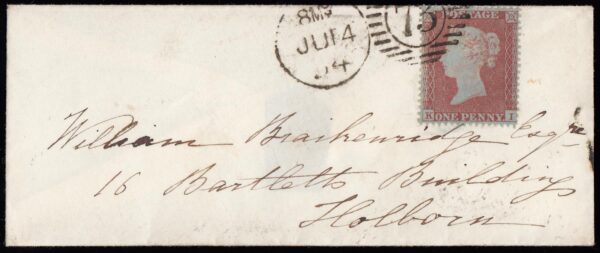 8Mg
JU14
54
75
POSTAGE
K ONE PENNY I
William Brackenridge Esqre
16 Bartletts Buildings
Holborn